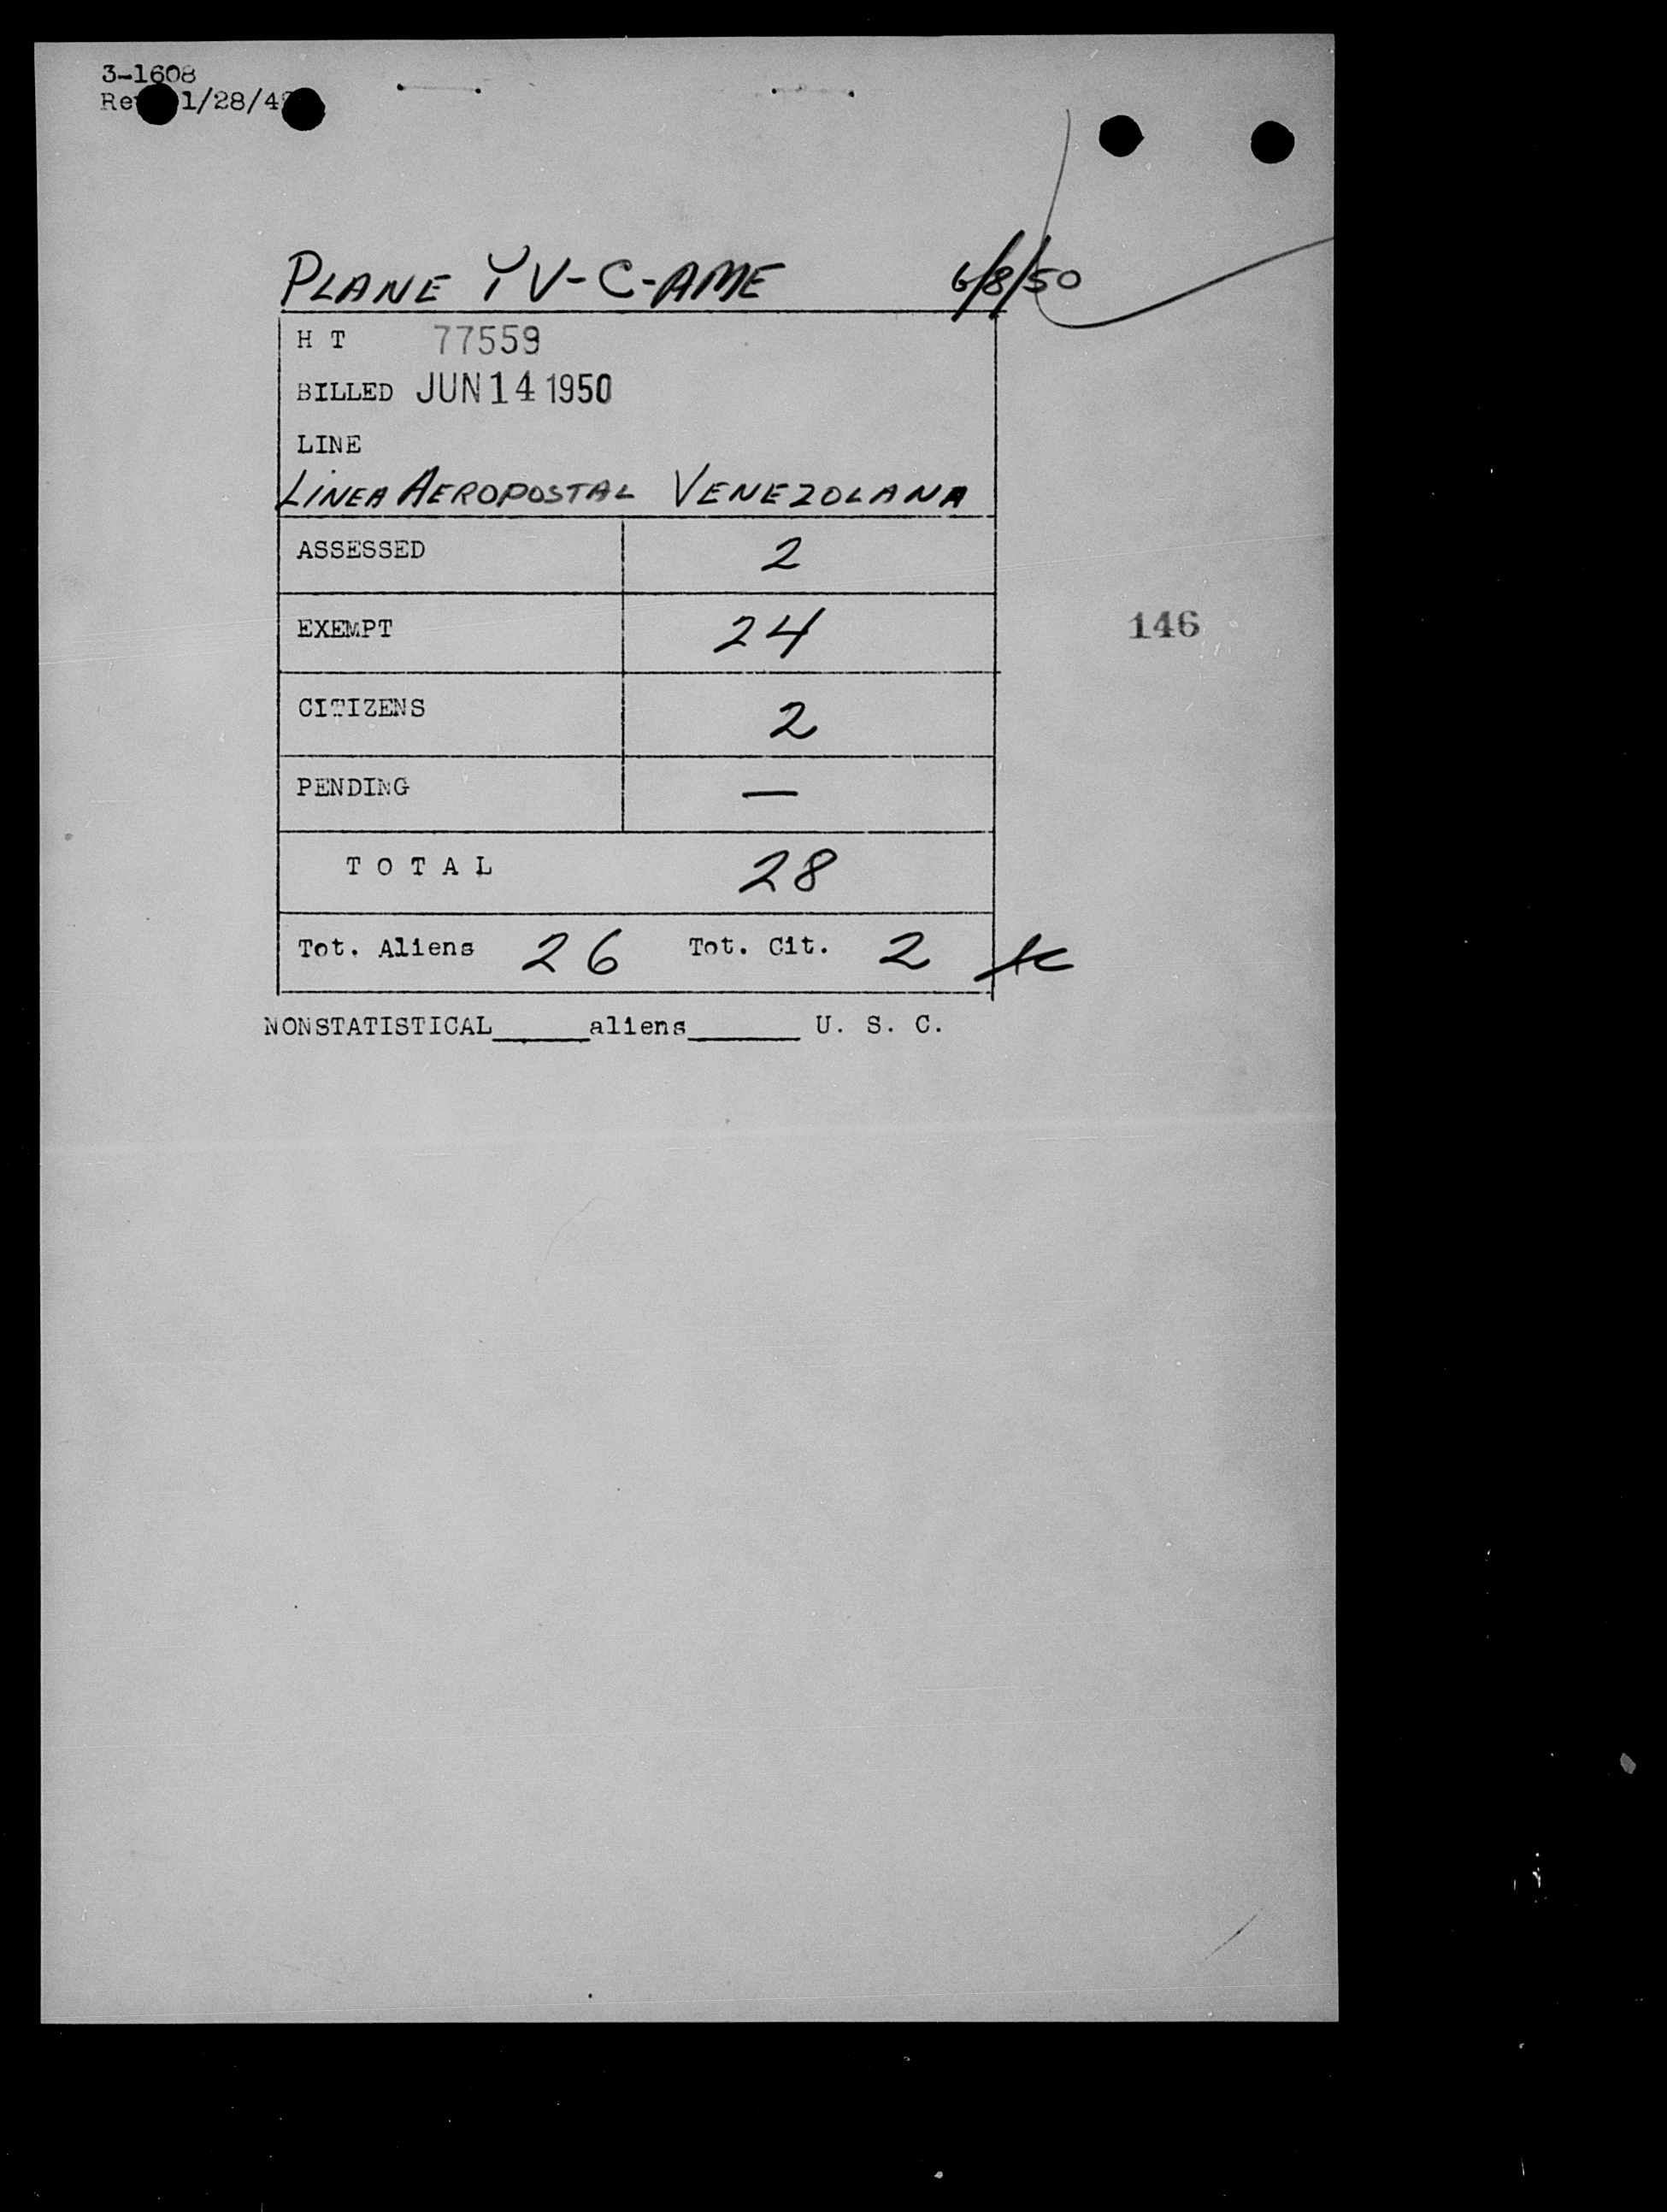 3-1608
1/28/4
PLANE YV-C-AME 6/8/50
H T 77559
BILLED JUN 14 1950
LINE
LINEA AEROPOSTAL VENEZOLANA
ASSESSED 2
EXEMPT 24
146
CITIZENS 2
PENDING —
TOTAL 28
Tot. Aliens 26 Tot. Cit. 2
NONSTATISTICAL_____aliens______ U. S. C.